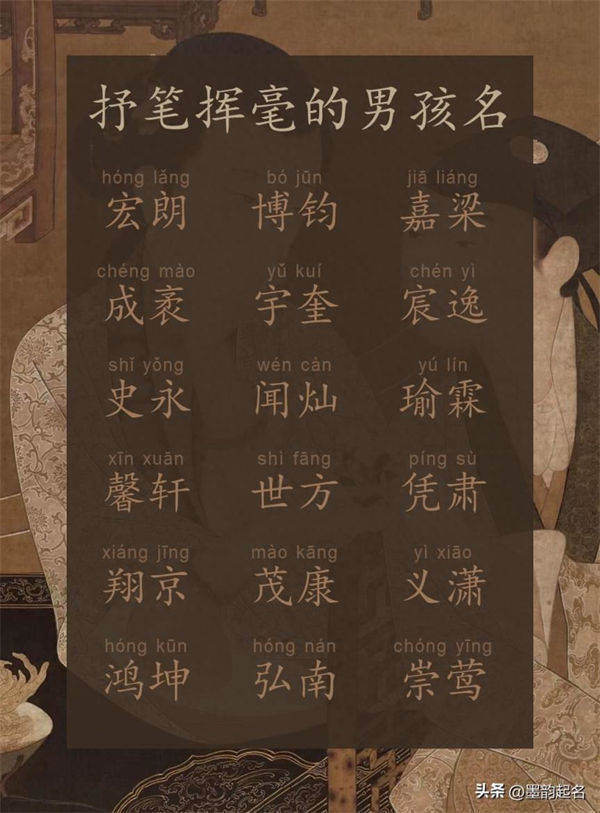 抒笔挥毫的男孩名
hóng lǎng bó jūn jiā liáng
宏朗 博钧 嘉梁
chéng mào yǔ kuí chén yì
成袤 宇奎 宸逸
shǐ yǒng wén càn yú lín
史永 闻灿 瑜霖
xīn xuān shì fāng píng sù
馨轩 世方 凭肃
xiáng jīng mào kāng yì xiāo
翔京 茂康 义潇
hóng kūn hóng nán chóng yīng
鸿坤 弘南 崇莺
头条 @墨韵起名